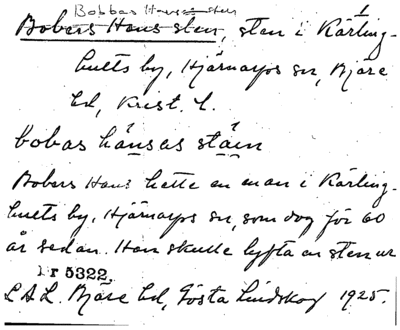 Bobbas Hans sten
Bobers Hans sten, sten i Kärling-
hults by, Hjärnarps sn, Bjäre
hd, Krist. l.
bobas hánsas stä́in
Bobers Hans hette en man i Kärling-
hults by, Hjärnarps sn, som dog för 60
år sedan. Han skulle lyfta en sten ur
r 5322.
L A L. Bjäre hd, Gösta Lindskog 1925.